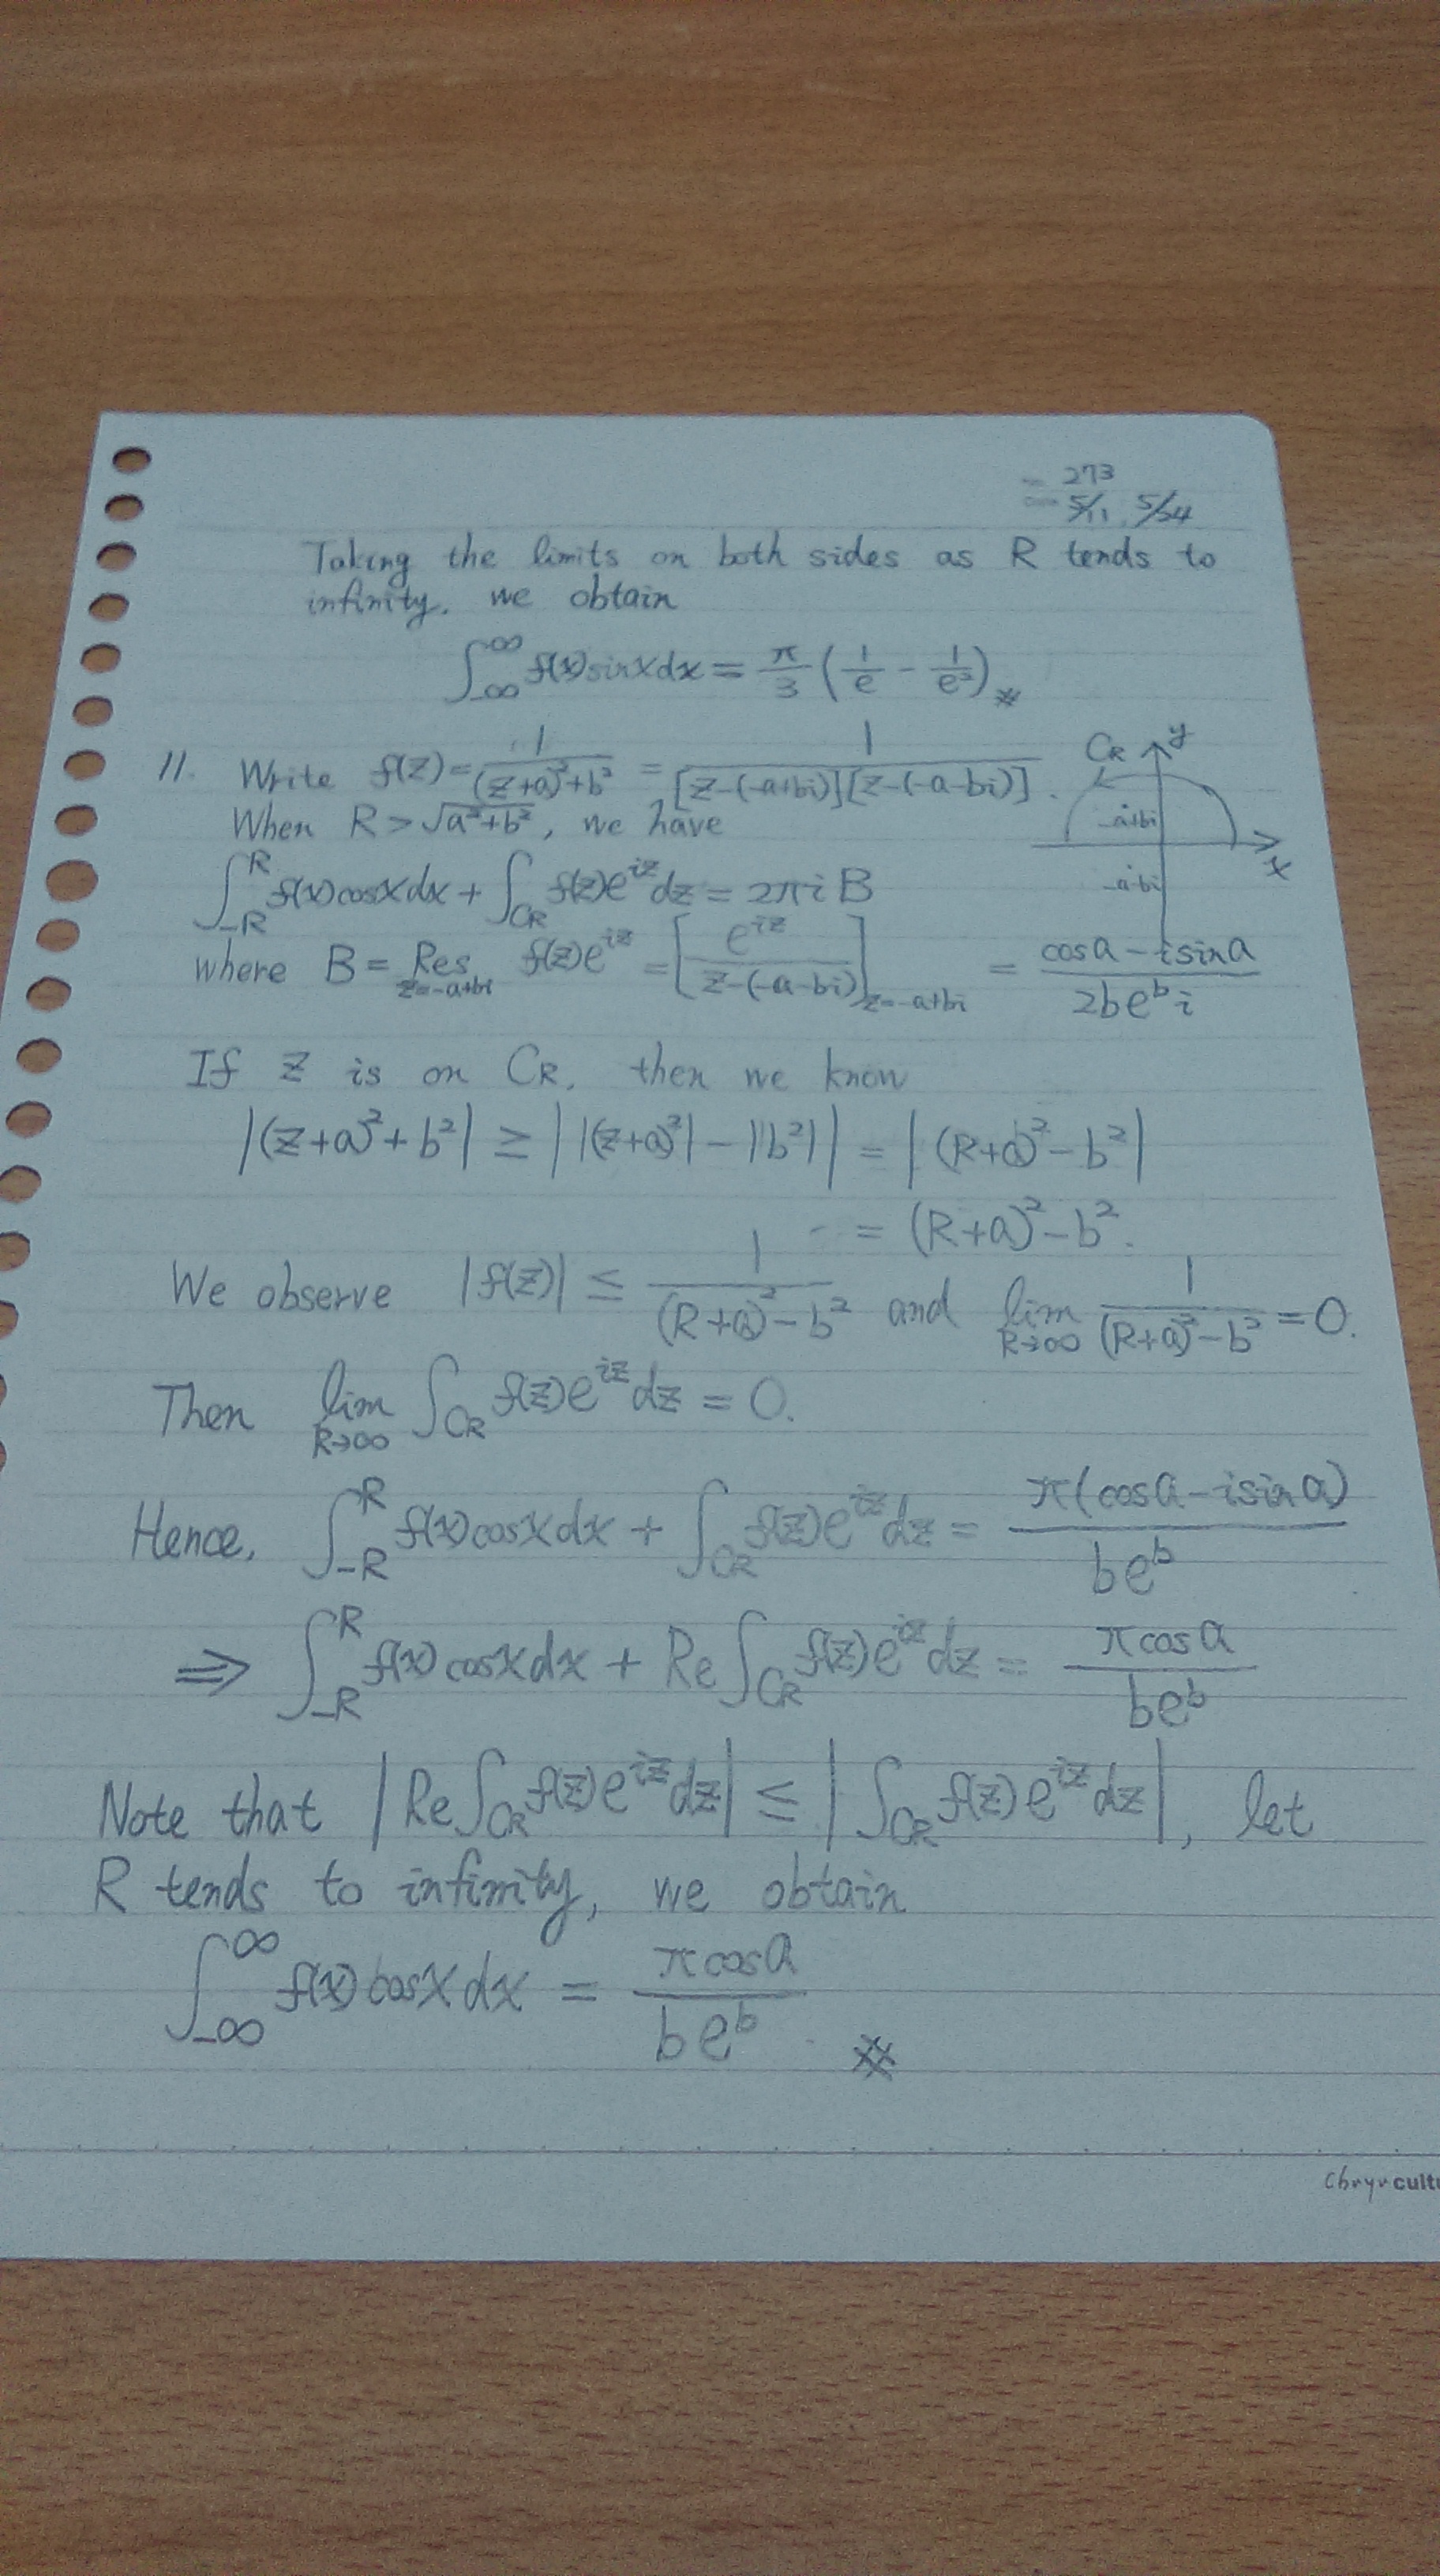 = 273
= 5/11, 5/24
Taking the limits on both sides as R tends to
infinity, we obtain
∫_{-∞}^{∞} f(x) sin x dx = π/3 (1/e - 1/e²) ※
11. Write f(z) = 1/((z+a)²+b²) = 1/([z-(-a+bi)][z-(-a-bi)]).
C_R y
-a+bi
x
-a-bi
When R > √(a²+b²), we have
∫_{-R}^{R} f(x) cos x dx + ∫_{C_R} f(z)e^{iz} dz = 2πi B
where B = Res_{z=-a+bi} f(z)e^{iz} = [e^{iz}/(z-(-a-bi))]_{z=-a+bi} = (cos a - i sin a)/(2be^b i)
If z is on C_R, then we know
|(z+a)²+b²| ≥ ||(z+a)²| - |b²|| = |(R+a)²-b²|
= (R+a)²-b².
We observe |f(z)| ≤ 1/((R+a)²-b²) and lim_{R→∞} 1/((R+a)²-b²) = 0.
Then lim_{R→∞} ∫_{C_R} f(z)e^{iz} dz = 0.
Hence, ∫_{-R}^{R} f(x) cos x dx + ∫_{C_R} f(z)e^{iz} dz = π(cos a - i sin a)/(be^b)
⇒ ∫_{-R}^{R} f(x) cos x dx + Re ∫_{C_R} f(z)e^{iz} dz = π cos a/(be^b)
Note that |Re ∫_{C_R} f(z)e^{iz} dz| ≤ |∫_{C_R} f(z)e^{iz} dz|, let
R tends to infinity, we obtain
∫_{-∞}^{∞} f(x) cos x dx = π cos a/(be^b). ※